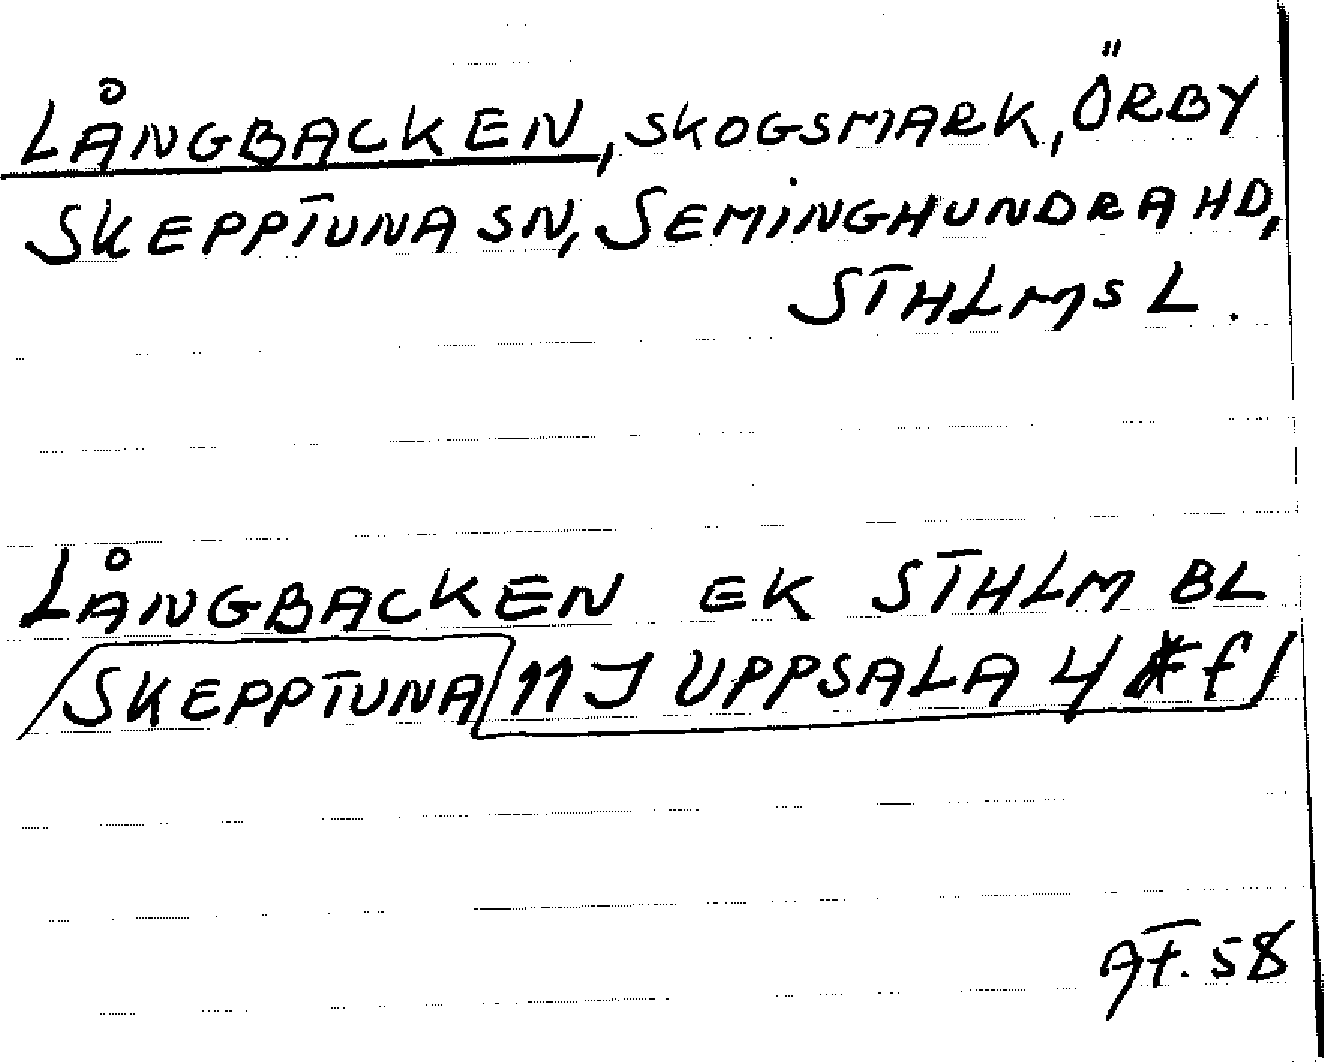 LÅNGBACKEN, SKOGSMARK, ÖRBY
SKEPPTUNA SN, SEMINGHUNDRA HD,
STHLMS L.
LÅNGBACKEN EK STHLM BL
SKEPPTUNA 11J UPPSALA 4 f
AF. 58